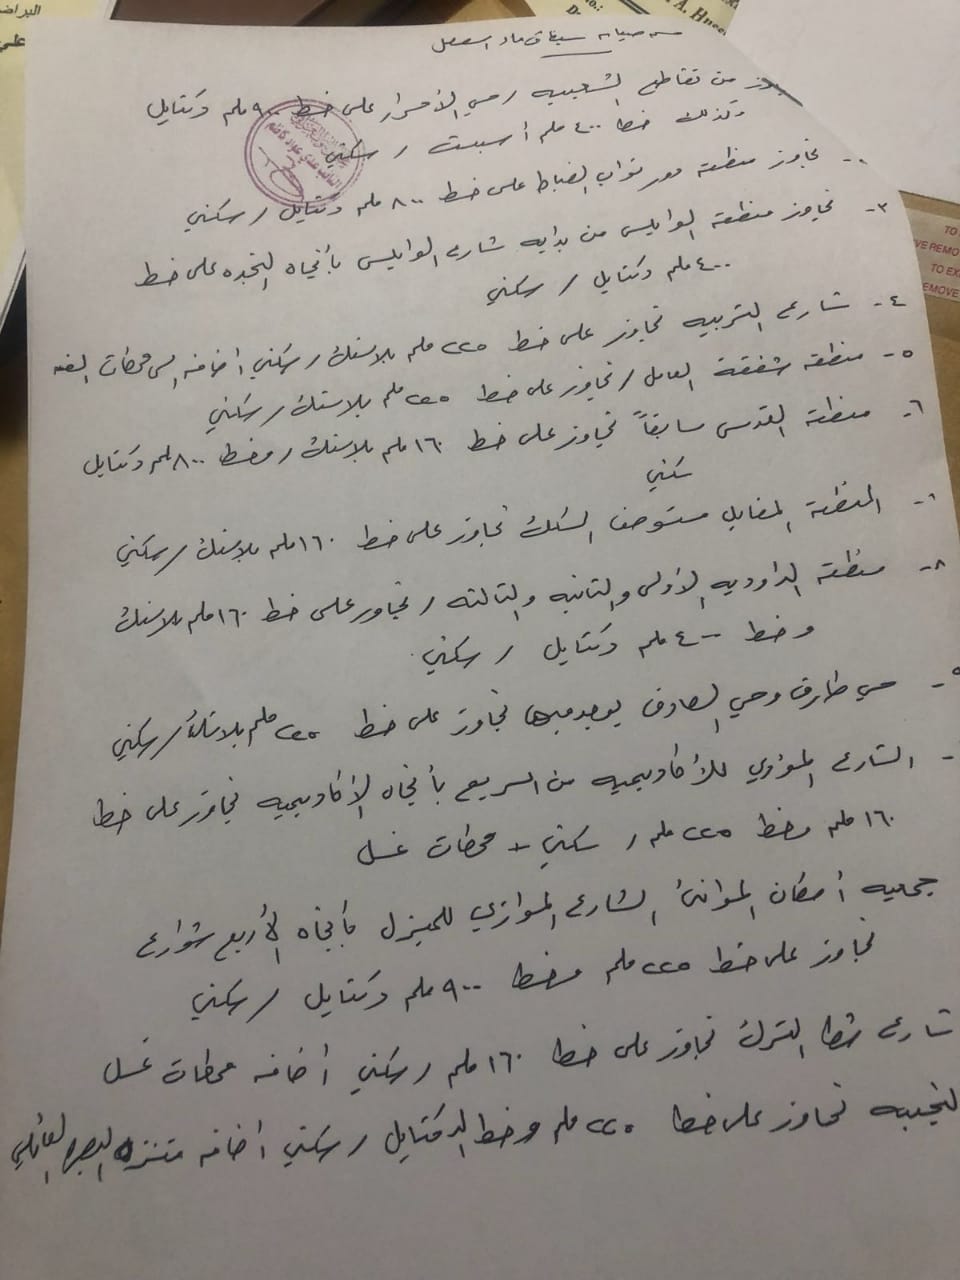 صيانه
من تقاطع الشعيبيه / حي الأحرار على خط ٩٠٠ ملم دكتايل
وكذلك خط ٤٠٠ ملم أسبست / سكني
تجاوز منطقة دور نواب الضباط على خط ٨٠٠ ملم دكتايل / سكني
٣- تجاوز منطقة الوايلس من بدايه شارع الوايلس بأتجاه النجده على خط
٤٠٠ ملم دكتايل / سكني
٤- شارع التربيه تجاوز على خط ٢٢٥ ملم بلاستك / سكني اضافه الى محطات
٥- منطقة شفقة العامل / تجاوز على خط ٢٢٥ ملم بلاستك / سكني
٦- منطقة القدس سابقاً تجاوز على خط ١٦٠ ملم بلاستك / وخط ٨٠٠ ملم دكتايل
سكني
المنطقة المقابل مستوصف السكك تجاوز على خط ١٦٠ ملم بلاستك / سكني
٨- منطقة الداوديه الأولى والثانيه والثالثه / تجاوز على خط ١٦٠ ملم بلاستك
وخط ٤٠٠ ملم دكتايل / سكني
حي طارق وحي الصادق يوجد فيها تجاوز على خط ٢٢٥ ملم بلاستك / سكني
الشارع المؤدي للأكاديميه من السريع بأتجاه الأكاديميه تجاوز على خط
١٦٠ ملم وخط ٢٢٥ ملم / سكني + محطات غسل
جمعيه أسكان الموانئ الشارع الموازي للمبزل بأتجاه الأربع شوارع
تجاوز على خط ٢٢٥ ملم وخط ٩٠٠ ملم دكتايل / سكني
شارع شط الترك تجاوز على خط ١٦٠ ملم / سكني أضافه محطات غسل
تجاوز على خط ٢٢٥ ملم وخط الدكتايل / سكني أضافه متنزه البصره العائلي